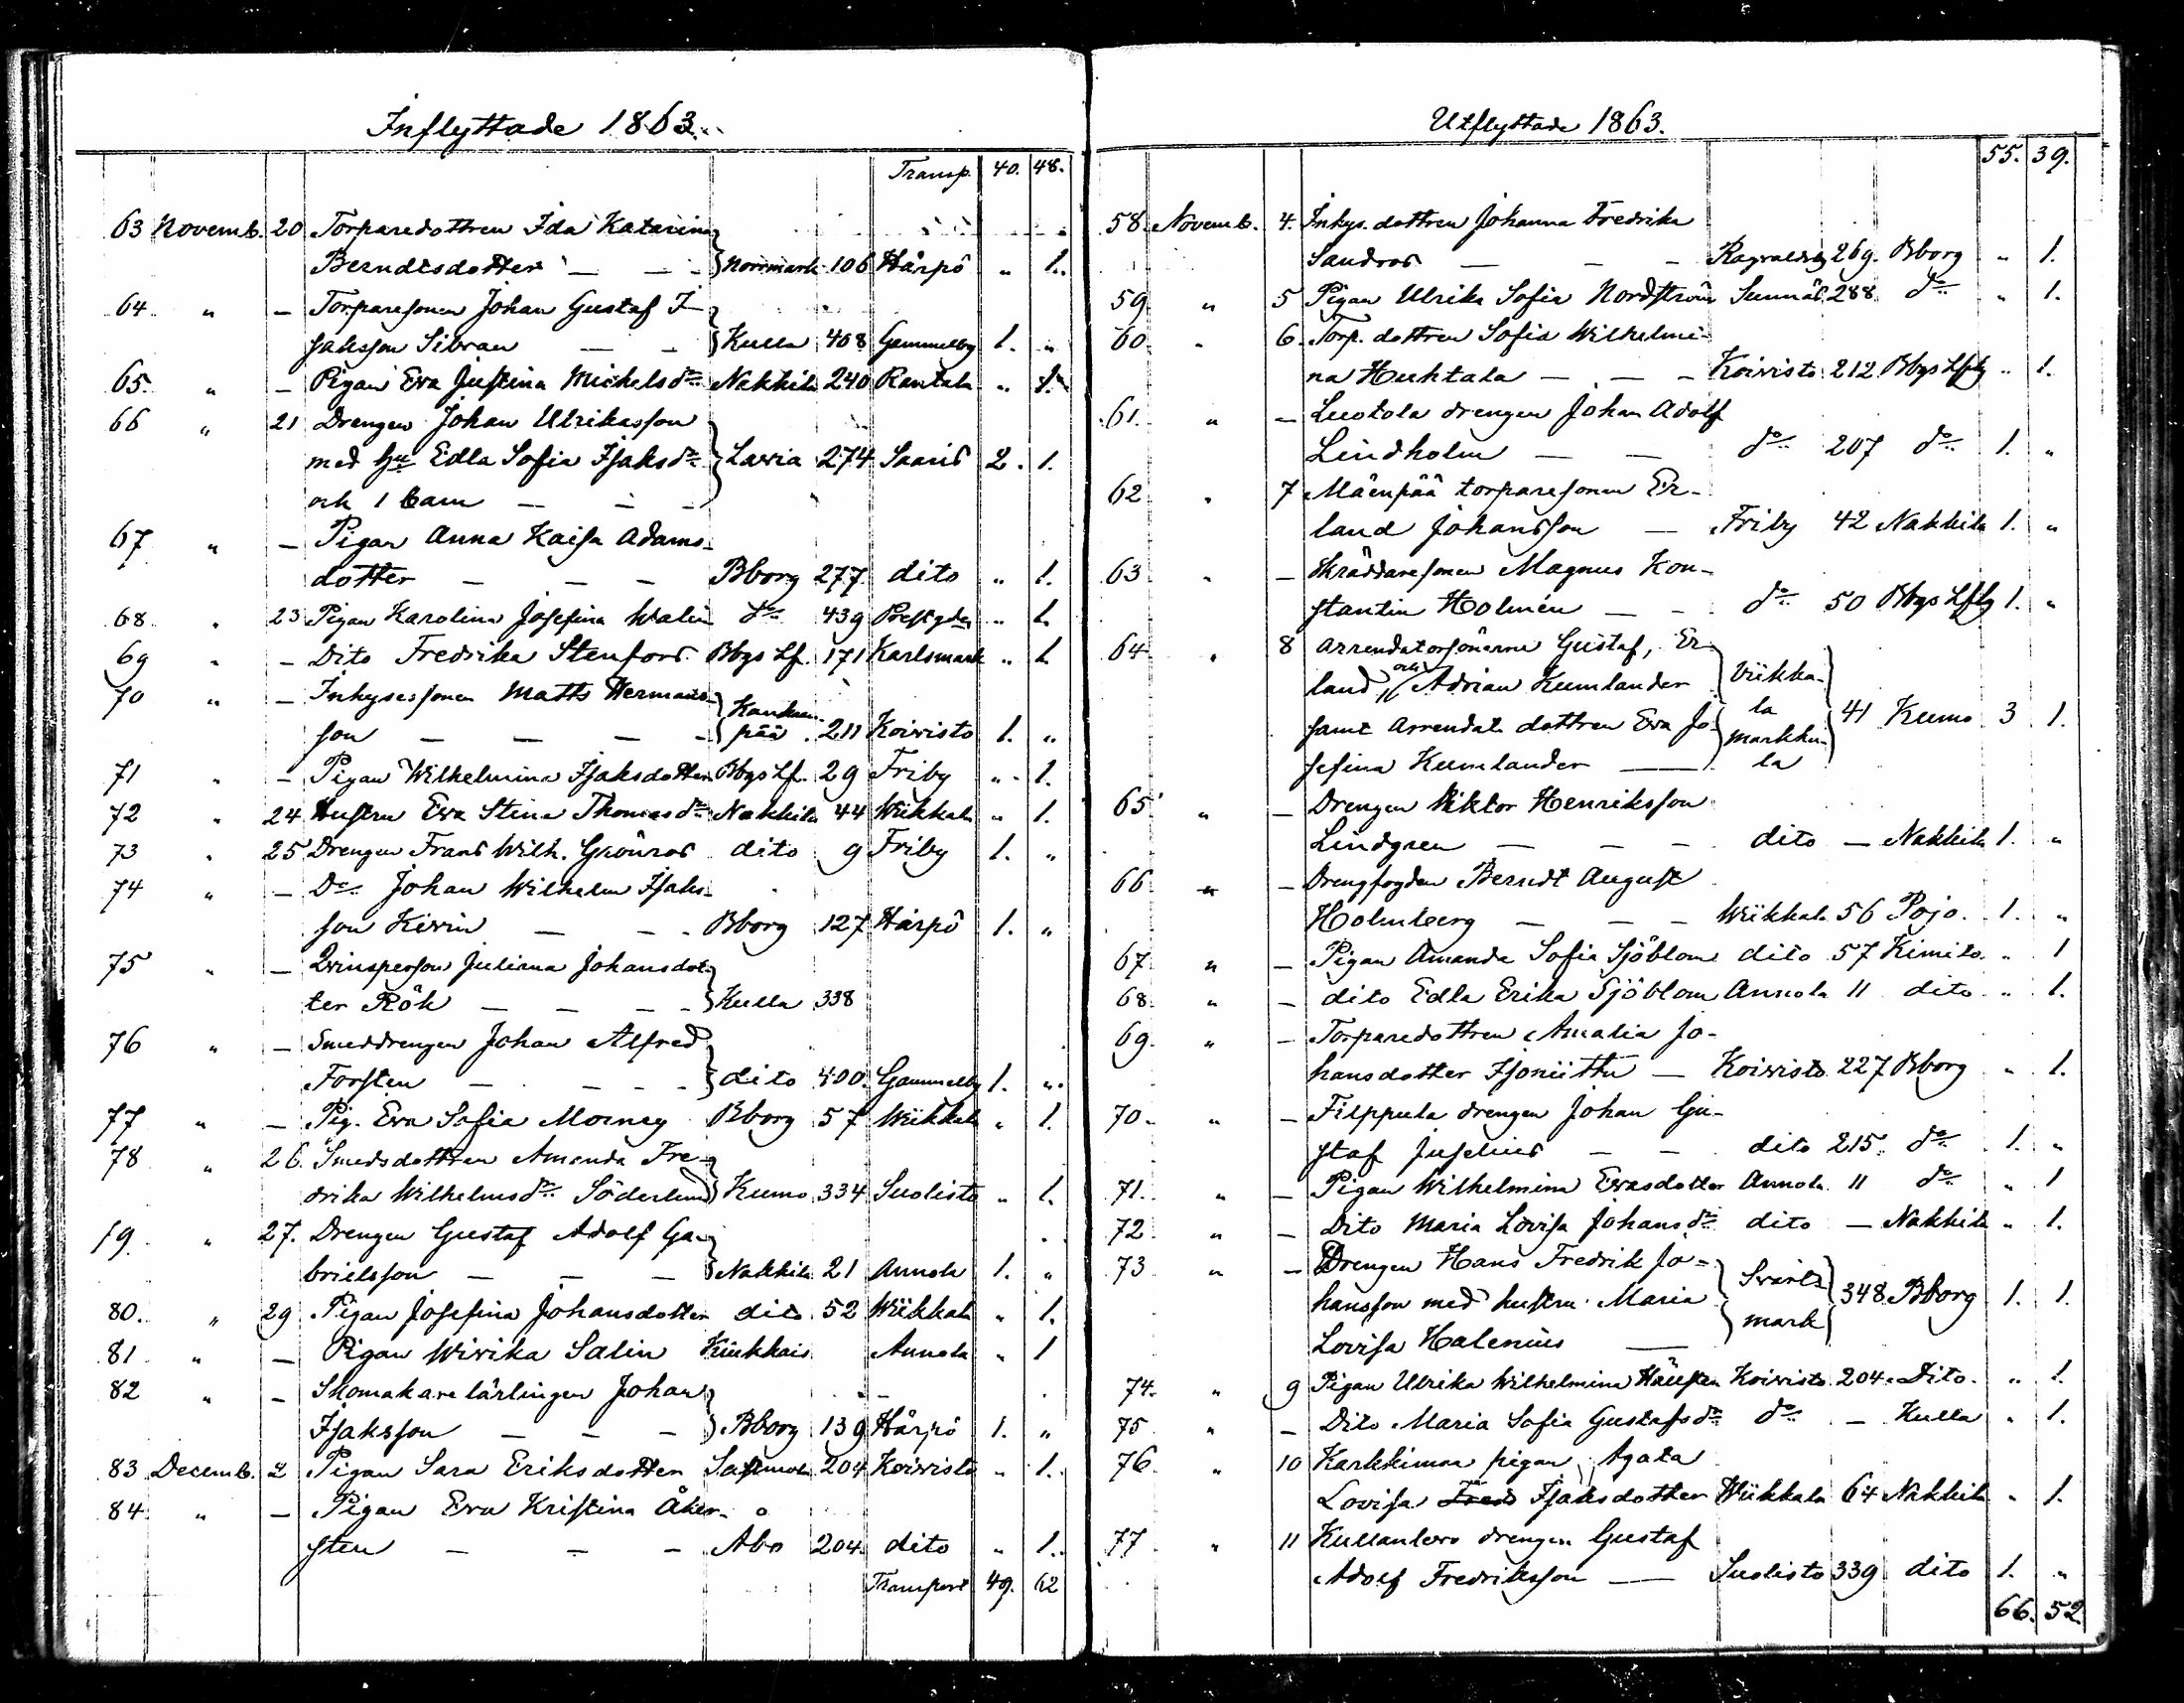 Inflyttade 1863.
Transp. 40. 48.
63 Novemb. 20 Torparedottren Ida Katarina
Berndtsdotter — — Norrmark 106 Hårpö " 1.
64 " — Torparesonen Johan Gustaf I-
saksson Sibran — — Kulla 408 Gammelby 1. "
65. " — Pigan Eva Justina Michelsdr Nakkila 240 Rantala " 1.
66 " 21 Drengen Johan Ulriksson
med hu Edla Sofia Isaksdr Lavia 274 Saaris 2. 1.
och 1 barn — — —
67 " — Pigan Anna Kaisa Adams-
dotter — — — Bborg 277 dito " 1.
68 " 23 Pigan Karolina Josefina Walin do 439 Prestgden " 1.
69 " — Dito Fredrika Stenfors Bbgs Lf. 171 Karlsmark " 1.
70 " — Inhysessonen Matts Hermans-
son — — — Kankaanpää 211 Koivisto 1. "
71 " — Pigan Wilhelmina Isaksdotter Bbgs Lf. 29 Friby " 1.
72 " 24 Hustru Eva Stina Thomasdr Nakkila 44 Wiikkala " 1.
73 " 25 Drengen Frans Wilh. Grönros dito 9 Friby 1. "
74 " — Do Johan Wilhelm Isaks-
son Kivin — — Bborg 127 Hårpö 1. "
75 " — Qvinsperson Juliana Johansdot-
ter Rök — — — Kulla 338
76 " — Smeddrengen Johan Alfred
Forsten — — — dito 400 Gammelby 1. "
77 " — Pig. Eva Sofia Morney Bborg 57 Wiikkala " 1.
78 " 26. Smedsdottren Amanda Fre-
drika Wilhelmsdr Söderlund Kumo 334 Suolisto " 1.
79. " 27. Drengen Gustaf Adolf Ga-
brielsson — — — Nakkila 21 Annola 1. "
80. " 29 Pigan Josefina Johansdotter dito 52 Wiikkala " 1.
81 " — Pigan Wivika Salin Kiukkais Annola " 1
82 " — Skomakarelärlingen Johan
Isaksson — — — Bborg 139 Hårpö 1. "
83 Decemb. 2 Pigan Sara Eriksdotter 204 Koivisto " 1.
84 " — Pigan Eva Kristina Åker-
sten — — — Åbo 204 dito " 1.
Transport 49. 62
Utflyttade 1863.
55. 39.
58 Novemb. 4. Inhys. dottren Johanna Fredrika
Sandros — — — Ragvaldsby 269. Bborg " 1.
59 " 5 Pigan Ulrika Sofia Nordström Sunnäs 288 do " 1.
60 " 6 Torp. dottren Sofia Wilhelmi-
na Huhtala — — — Koivisto 212 Bbgs Lfg " 1.
61. " — Luotola drengen Johan Adolf
Lindholm — — do 207 do 1. "
62 " 7 Mäenpää torparesonen Er-
land Johansson — Friby 42 Nakkila 1. "
63 " — Skräddaresonen Magnus Kon-
stantin Holmén — — do 50 Bbgs Lfg 1. "
64 " 8 Arrendatorsönerna Gustaf, Er-
land, och Adrian Kumlander Viikka-
samt Arrendat. dottren Eva Jo- la markku- 41 Kumo 3 1.
sefina Kumlander — la
65 " — Drengen Viktor Henriksson
Lindgren — — — dito — Nakkila 1. "
66 " — Drengfogden Berndt August
Holmberg — — — Wiikkala 56 Pojo. 1. "
67 " — Pigan Amanda Sofia Sjöblom dito 57 Kimito " 1
68 " — dito Edla Erika Sjöblom Annola 11 dito " 1.
69. " — Torparedottren Amalia Jo-
hansdotter Isoniittu — Koivisto 227 Bborg " 1.
70 " — Filppula drengen Johan Gu-
staf Juselius — — dito 215. do 1. "
71. " — Pigan Wilhelmina Evasdotter Annola 11 do " 1
72. " — Dito Maria Lovisa Johansdr dito — Nakkila " 1.
73 " — Drengen Hans Fredrik Jo-
hansson med hustru Maria Svarts mark 348 Bborg 1. 1.
Lovisa Halenius —
74. " 9 Pigan Ulrika Wilhelmina Koivisto 204 Dito " 1.
75 " — Dito Maria Sofia Gustafsdr do — Kulla " 1.
76 " 10 Karkkiman pigan Agata
Lovisa Fred Isaksdotter Wiikkala 64 Nakkila " 1.
77 " 11 Kullanlevo drengen Gustaf
Adolf Fredriksson — Suolisto 339 dito 1. "
66. 52.